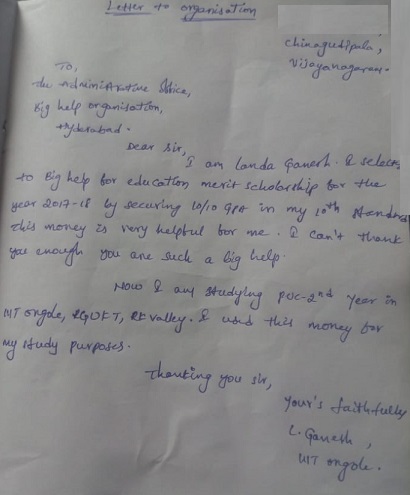 Letter to organisation
chinagudipala,
Vijayanagaram.
To,
the Administrative Office,
Big help organisation,
Hyderabad.
Dear Sir,
I am Landa Ganesh. I select
to Big help for education merit scholarship for the
year 2017-18 by securing 10/10 GPA in my 10th standard
this money is very helpful for me. I can't thank
you enough you are such a big help.
Now I am studying PUC-2nd year in
IIIT ongole, RGUKT, RK valley. I used this money for
my study purposes.
Thanking you sir,
your's faithfully
L. Ganesh,
IIIT ongole.